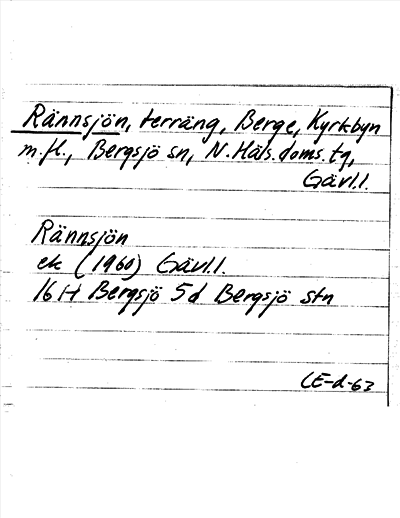 Rännsjön, terräng, Berge, Kyrkbyn
m.fl., Bergsjö sn, N.Häls.doms.tg,
Gävl.l.
Rännsjön
ek (1960) Gävl.l.
16 H Bergsjö 5d Bergsjö stn
CE-d-63